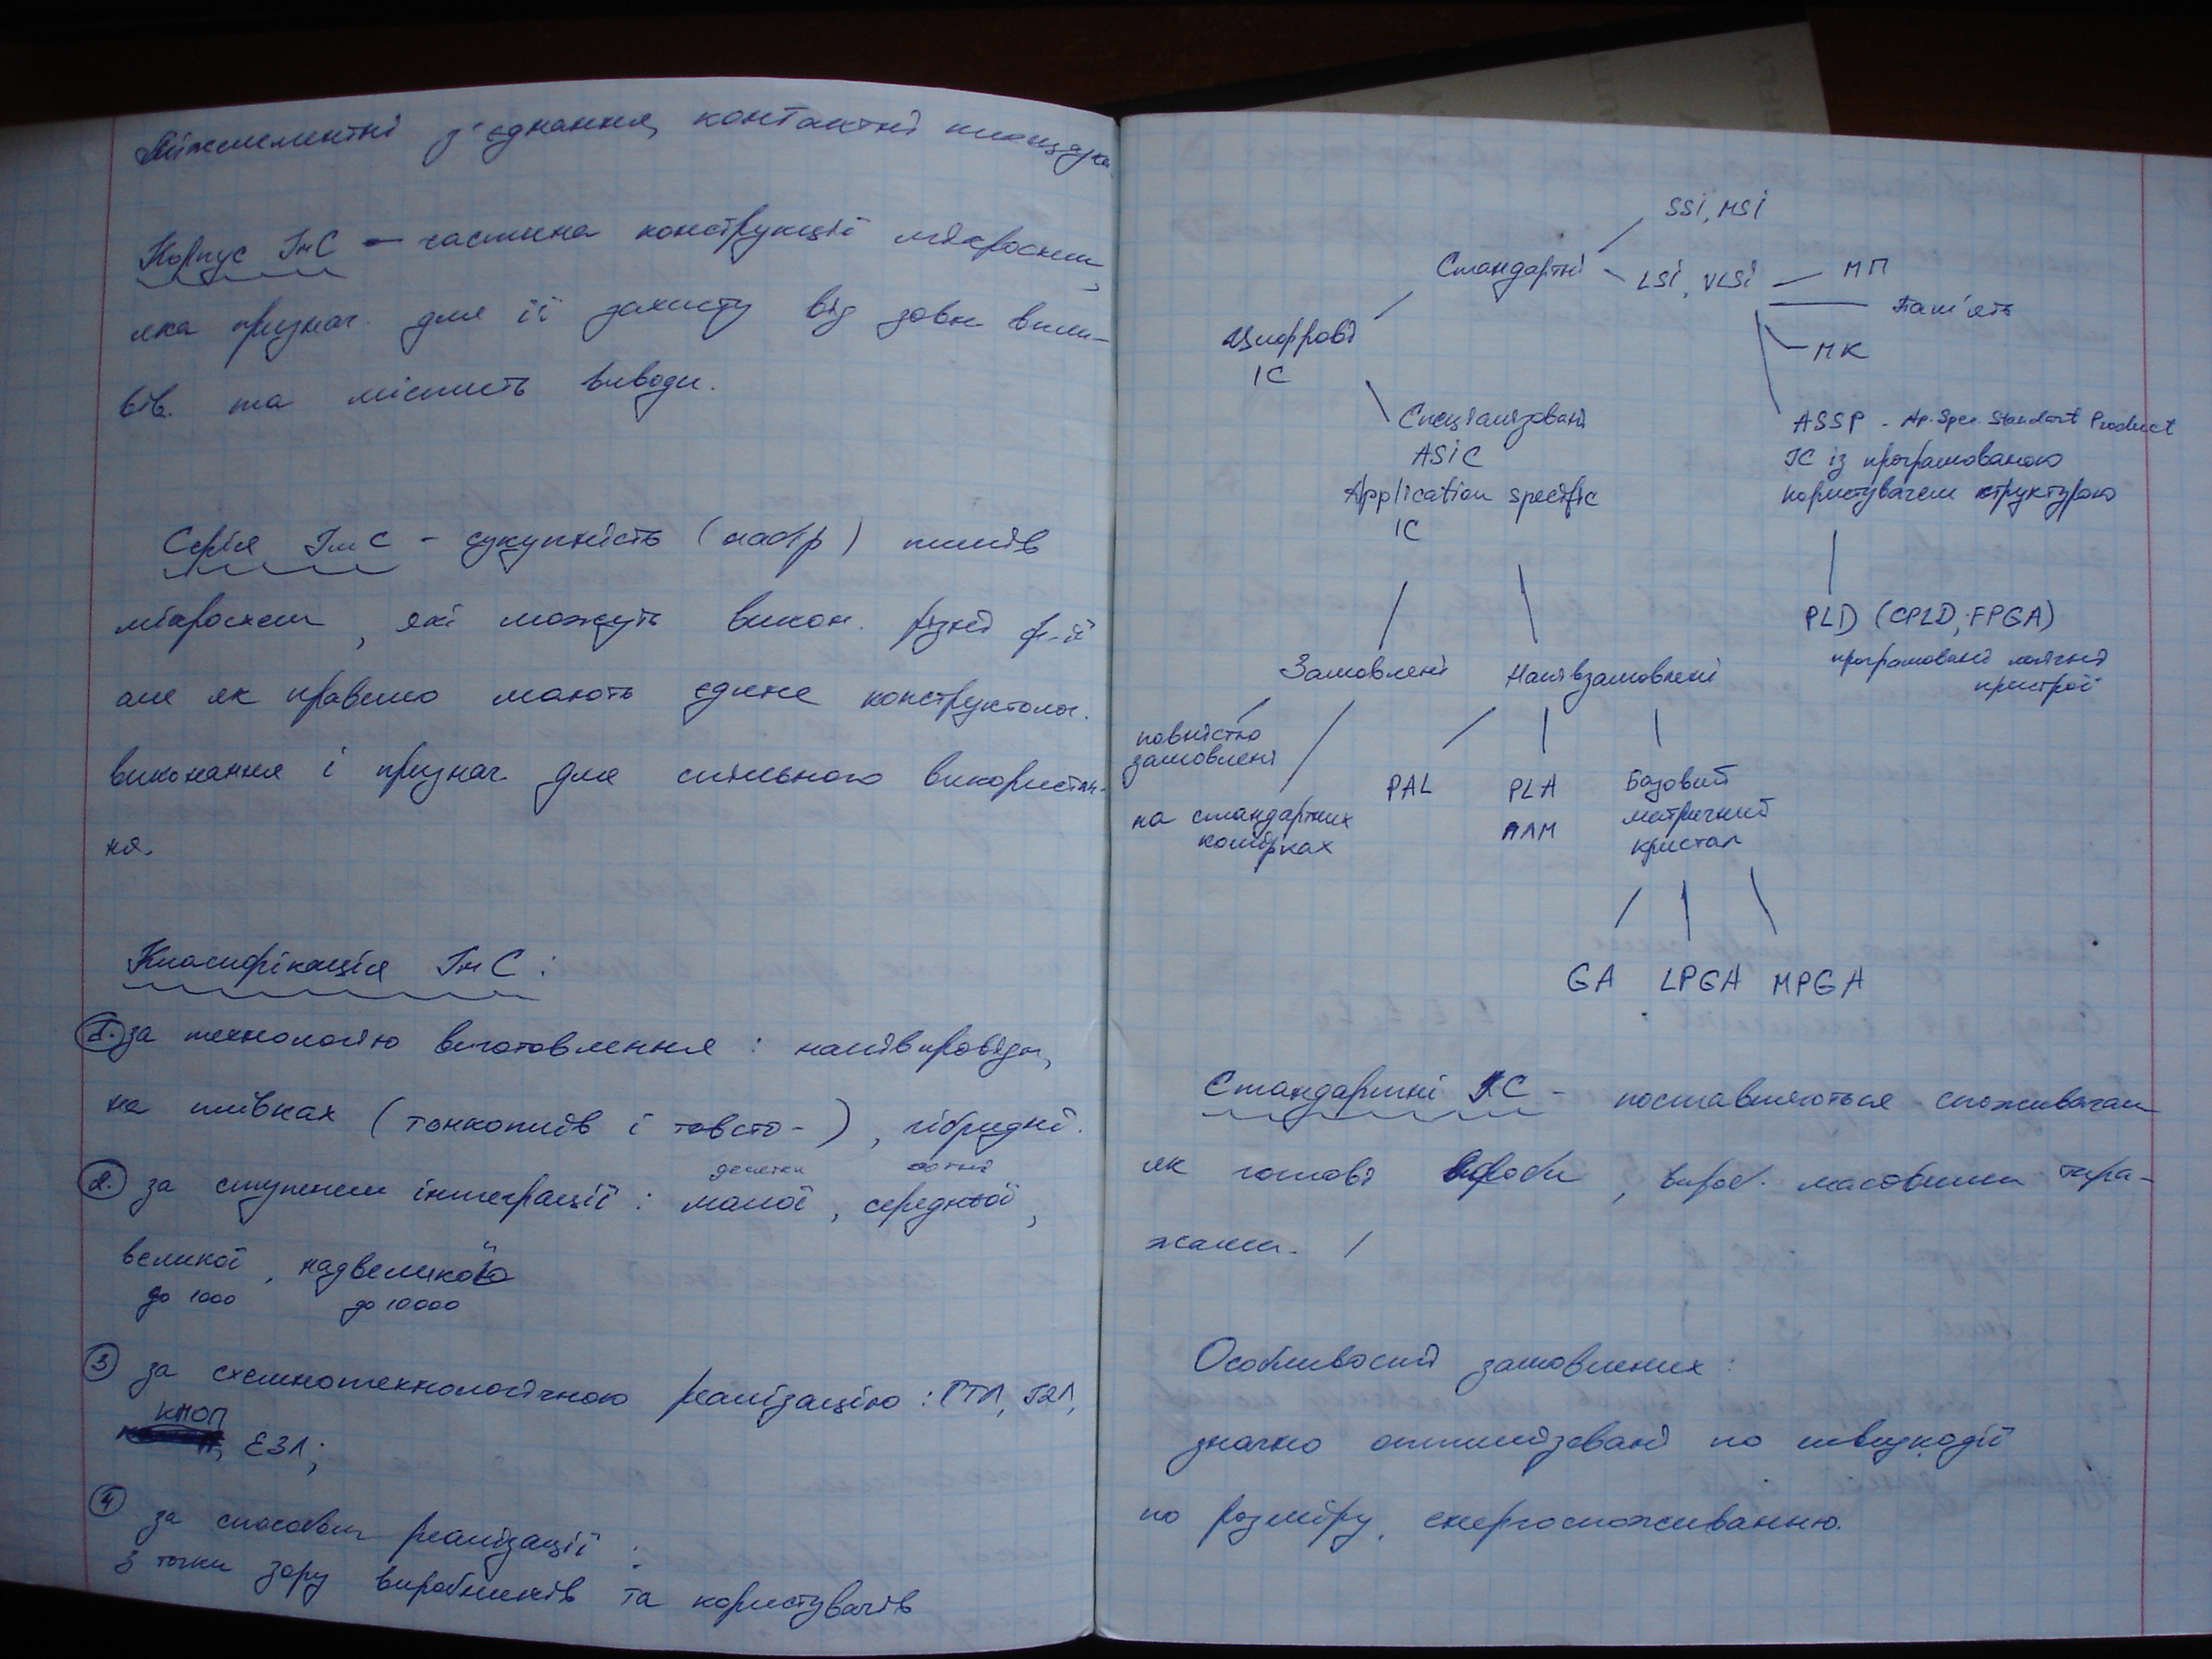 Міжелементні з'єднання, контактні площадки.
Корпус ІмС – частина конструкції мікросхем,
яка признач. для її захисту від зовн впли-
вів. та містить виводи.
Серія ІмС – сукупність (набір) типів
мікросхем, які можуть викон. різні ф-ії
але як правило мають єдине конструктолог.
виконання і признач. для спільного використан-
ня.
Класифікація ІмС:
1. за технологією виготовлення: напівпровідн,
на плівках (тонкоплів і товсто-), гібридні.
десятки сотні
2. за ступенем інтеграції: малої, середньої,
великої, надвеликої
до 1000 до 10000
3 за схемнотехнологічною реалізацією: РТЛ, Т2Л,
КМОП
ЕЗЛ;
4 за способом реалізації:
З точки зору виробників та користувачів
SSI, MSI
Стандартні
LSI, VLSI
МП
Пам'ять
МК
Цифрові
ІС
Спеціалізовані
ASIC
Application specific
IC
ASSP - Ap. Spec. Standart Product
ІС із програмованою
користувачем структурою
PLD (CPLD, FPGA)
програмовані логічні
пристрої
Замовлені
Напівзамовлені
повністю
замовлені
на стандартних
комірках
PAL
PLA
ПЛМ
Базовий
матричний
кристал
GA LPGA MPGA
Стандартні ІС – поставляються споживачам
як готові вироби, вироб. масовими тира-
жами.
Особливості замовлених:
значно оптимізовані по швидкодії
по розміру, енергоспоживанню.